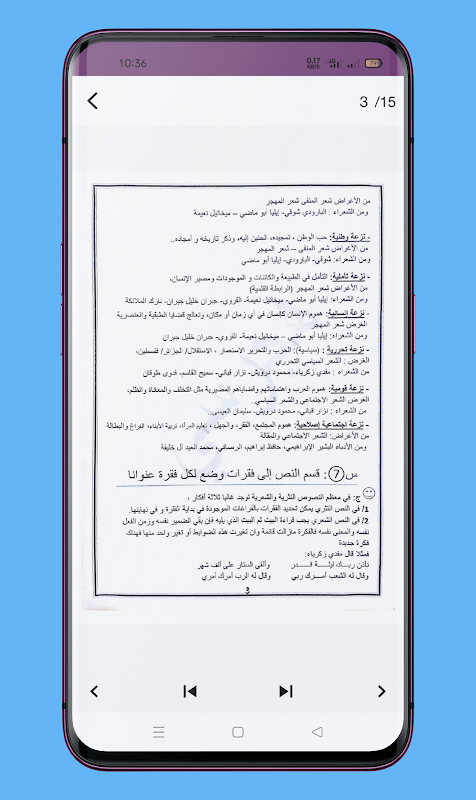 10:36
0.17
KB/S
4G
79
3 /15
من الأغراض شعر المنفى شعر المهجر
ومن الشعراء : البارودي شوقي- إيليا أبو ماضي – ميخائيل نعيمة
- نزعة وطنية: حب الوطن ، تمجيده، الحنين إليه، وذكر تاريخه و أمجاده..
من الأغراض شعر المنفى – شعر المهجر
ومن الشعراء: شوقي- البارودي- إيليا أبو ماضي
- نزعة تأملية: التأمل في الطبيعة والكائنات و الموجودات ومصير الإنسان،
من الأغراض: شعر المهجر (الرابطة القلمية)
ومن الشعراء: إيليا أبو ماضي- ميخائيل نعيمة- القروي- جبران خليل جبران- نزك الملائكة
- نزعة إنسانية: هموم الإنسان كإنسان في أي زمان أو مكان، وتعالج قضايا الطبقية والعنصرية
الغرض شعر المهجر
ومن الشعراء: إيليا أبو ماضي- ميخائيل نعيمة- القروي- جبران خليل جبران
- نزعة تحررية : (سياسية): الحرب والتحرير الاستعمار ، الاستقلال/ الجزائر/ فلسطين،
الغرض : الشعر السياسي التحرري
من الشعراء : مفدي زكرياء- محمود درويش- نزار قباني- سميح القاسم- فدوى طوقان
- نزعة قومية: هموم العرب واهتماماتهم وقضاياهم المصيرية مثل التخلف والمعاناة والظلم،
الغرض الشعر الاجتماعي والشعر السياسي..
من الشعراء : نزار قباني- محمود درويش- سليمان العيسى..
- نزعة اجتماعية إصلاحية: هموم المجتمع، الفقر، والجهل ، تعليم المرأة، تربية الأبناء، الفراغ والبطالة
من الأغراض: الشعر الاجتماعي والمقالة
ومن الأدباء البشير الإبراهيمي، حافظ إبراهيم، الرصافي، محمد العيد آل خليفة
س7: قسم النص إلى فقرات وضع لكل فقرة عنوانا
ج: في معظم النصوص النثرية والشعرية توجد غالبا ثلاثة أفكار ،
1/ في النص النثري يمكن تحديد الفقرات بالفراغات الموجودة في بداية الفقرة و في نهايتها.
2/ في النص الشعري يجب قراءة البيت ثم البيت الذي يليه فإن بقي الضمير نفسه وزمن الفعل
نفسه والمعنى نفسه فالفكرة مازالت قائمة وان تغيرت هذه الضوابط أو تغير واحد منها فهناك
فكرة جديدة
فمثلا قال مفدي زكرياء:
تأذن ربـــك ليلـــة قـــــدر وألقى الستار على ألف شهر
وقال له الشعب أمـــرك ربي وقال له الرب أمرك أمري
3